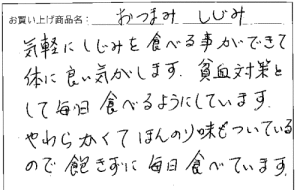 お買い上げ商品名： おつまみ しじみ
気軽にしじみを食べる事ができて
体に良い気がします。貧血対策と
して毎日食べるようにしています。
やわらかくてほんのり味もついている
ので飽きずに毎日食べています。